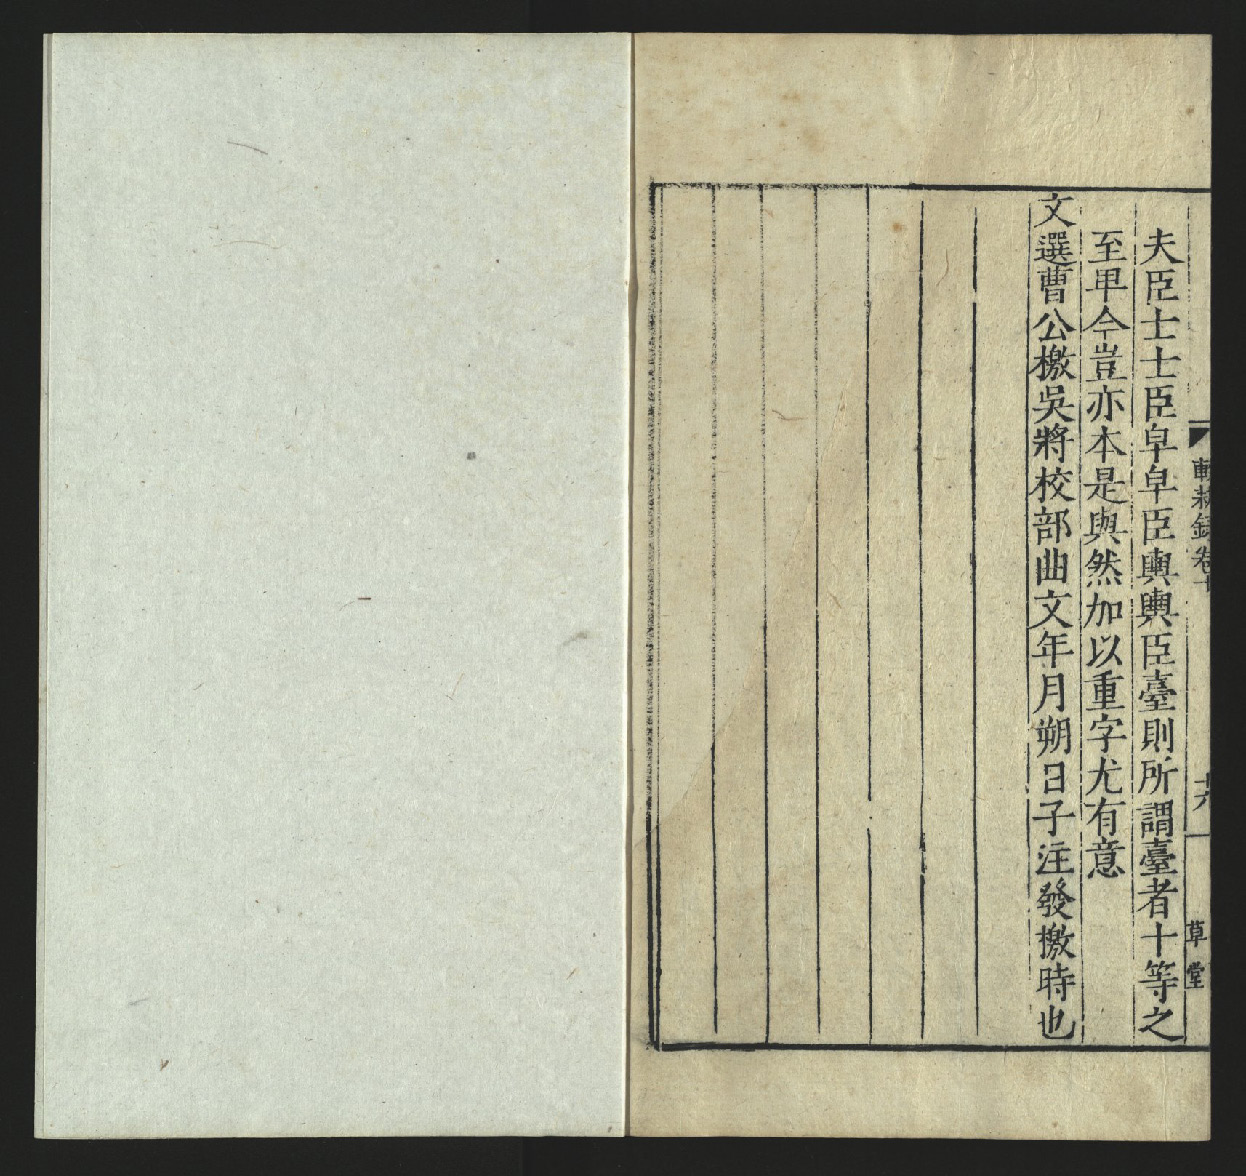 夫臣士士臣皁皁臣輿輿臣臺則所謂臺者十等之
至甲今豈亦本是與然加以重字尤有意
文選曹公檄吳將校部曲文年月朔日子注發檄時也
輟耕錄卷十
十六
草堂